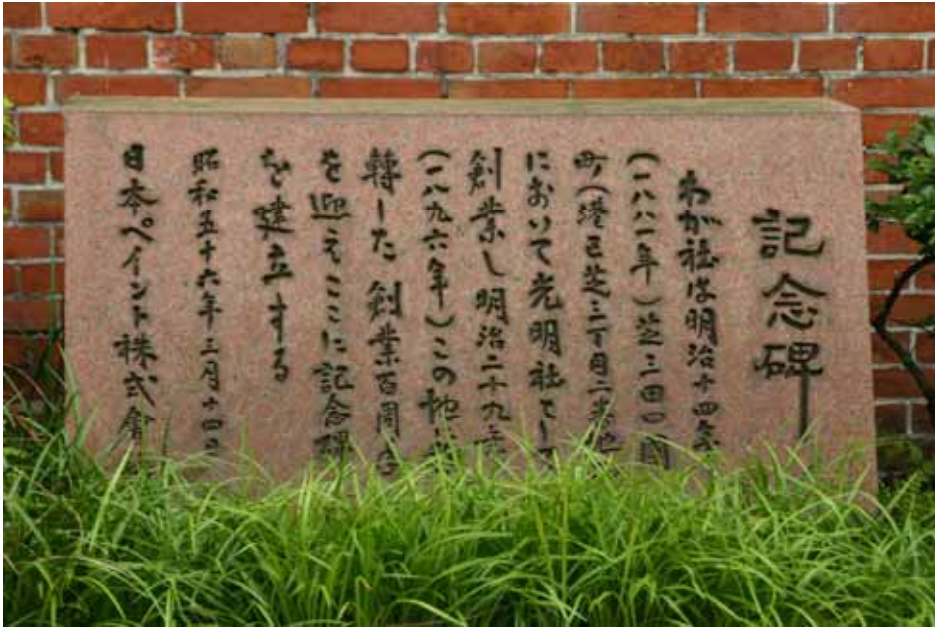 記念碑
わが社は明治十四年
(一八八一年)芝三田四國
町(港区芝三丁目二番地
において光明社として
創業し明治二十九年
(一八九六年)この地に
轉した 創業百周年
を迎えここに記念碑
を建立する
昭和五十六年三月十四日
日本ペイント株式會